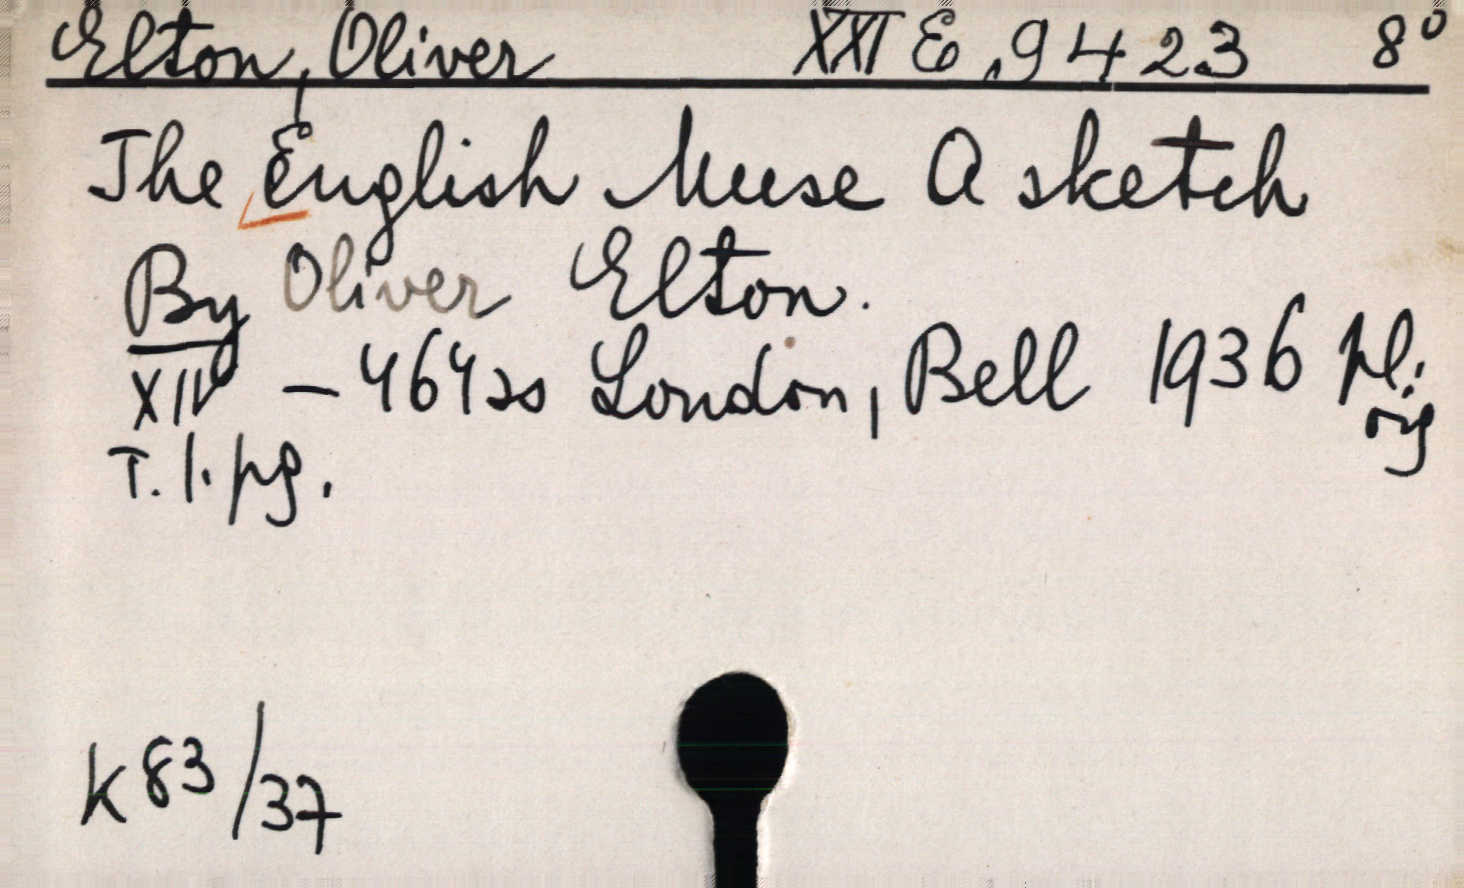 Elton, Oliver XXI E, 9423 8°
The English Muse A sketch
By Oliver Elton.
XIV – 464 ss London, Bell 1936 pl.
org
T. l. pg.
K 83/37